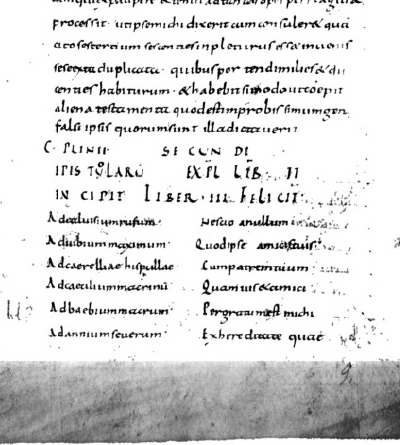 processit· utipsemichi dixerit cum consuler& quā
sestertium sescenties inpleturus ess& invenis
sesexta duplicata· quibus portendi milies & du
centies habiturum· & habebit simodo ut coepit
aliena testamenta quodestimprobissimum gen
falsi ipsis quorumsunt illa dictaverit
C· PLINII SECUNDI
EXPL LIB· II
INCIPIT LIBER· III· FELICIT·
Adcalvisiumrufum· Nescio anullum
Advibiummaximum· Quodipse amicis tuis·
Adcaerelliae hispullae Cumpatremtuum·
Adcaeciliummacrinū Quamvis & amici
Adbaebiummacrum· Pergratumest michi
Adanniumseverum· Exhereditate quae